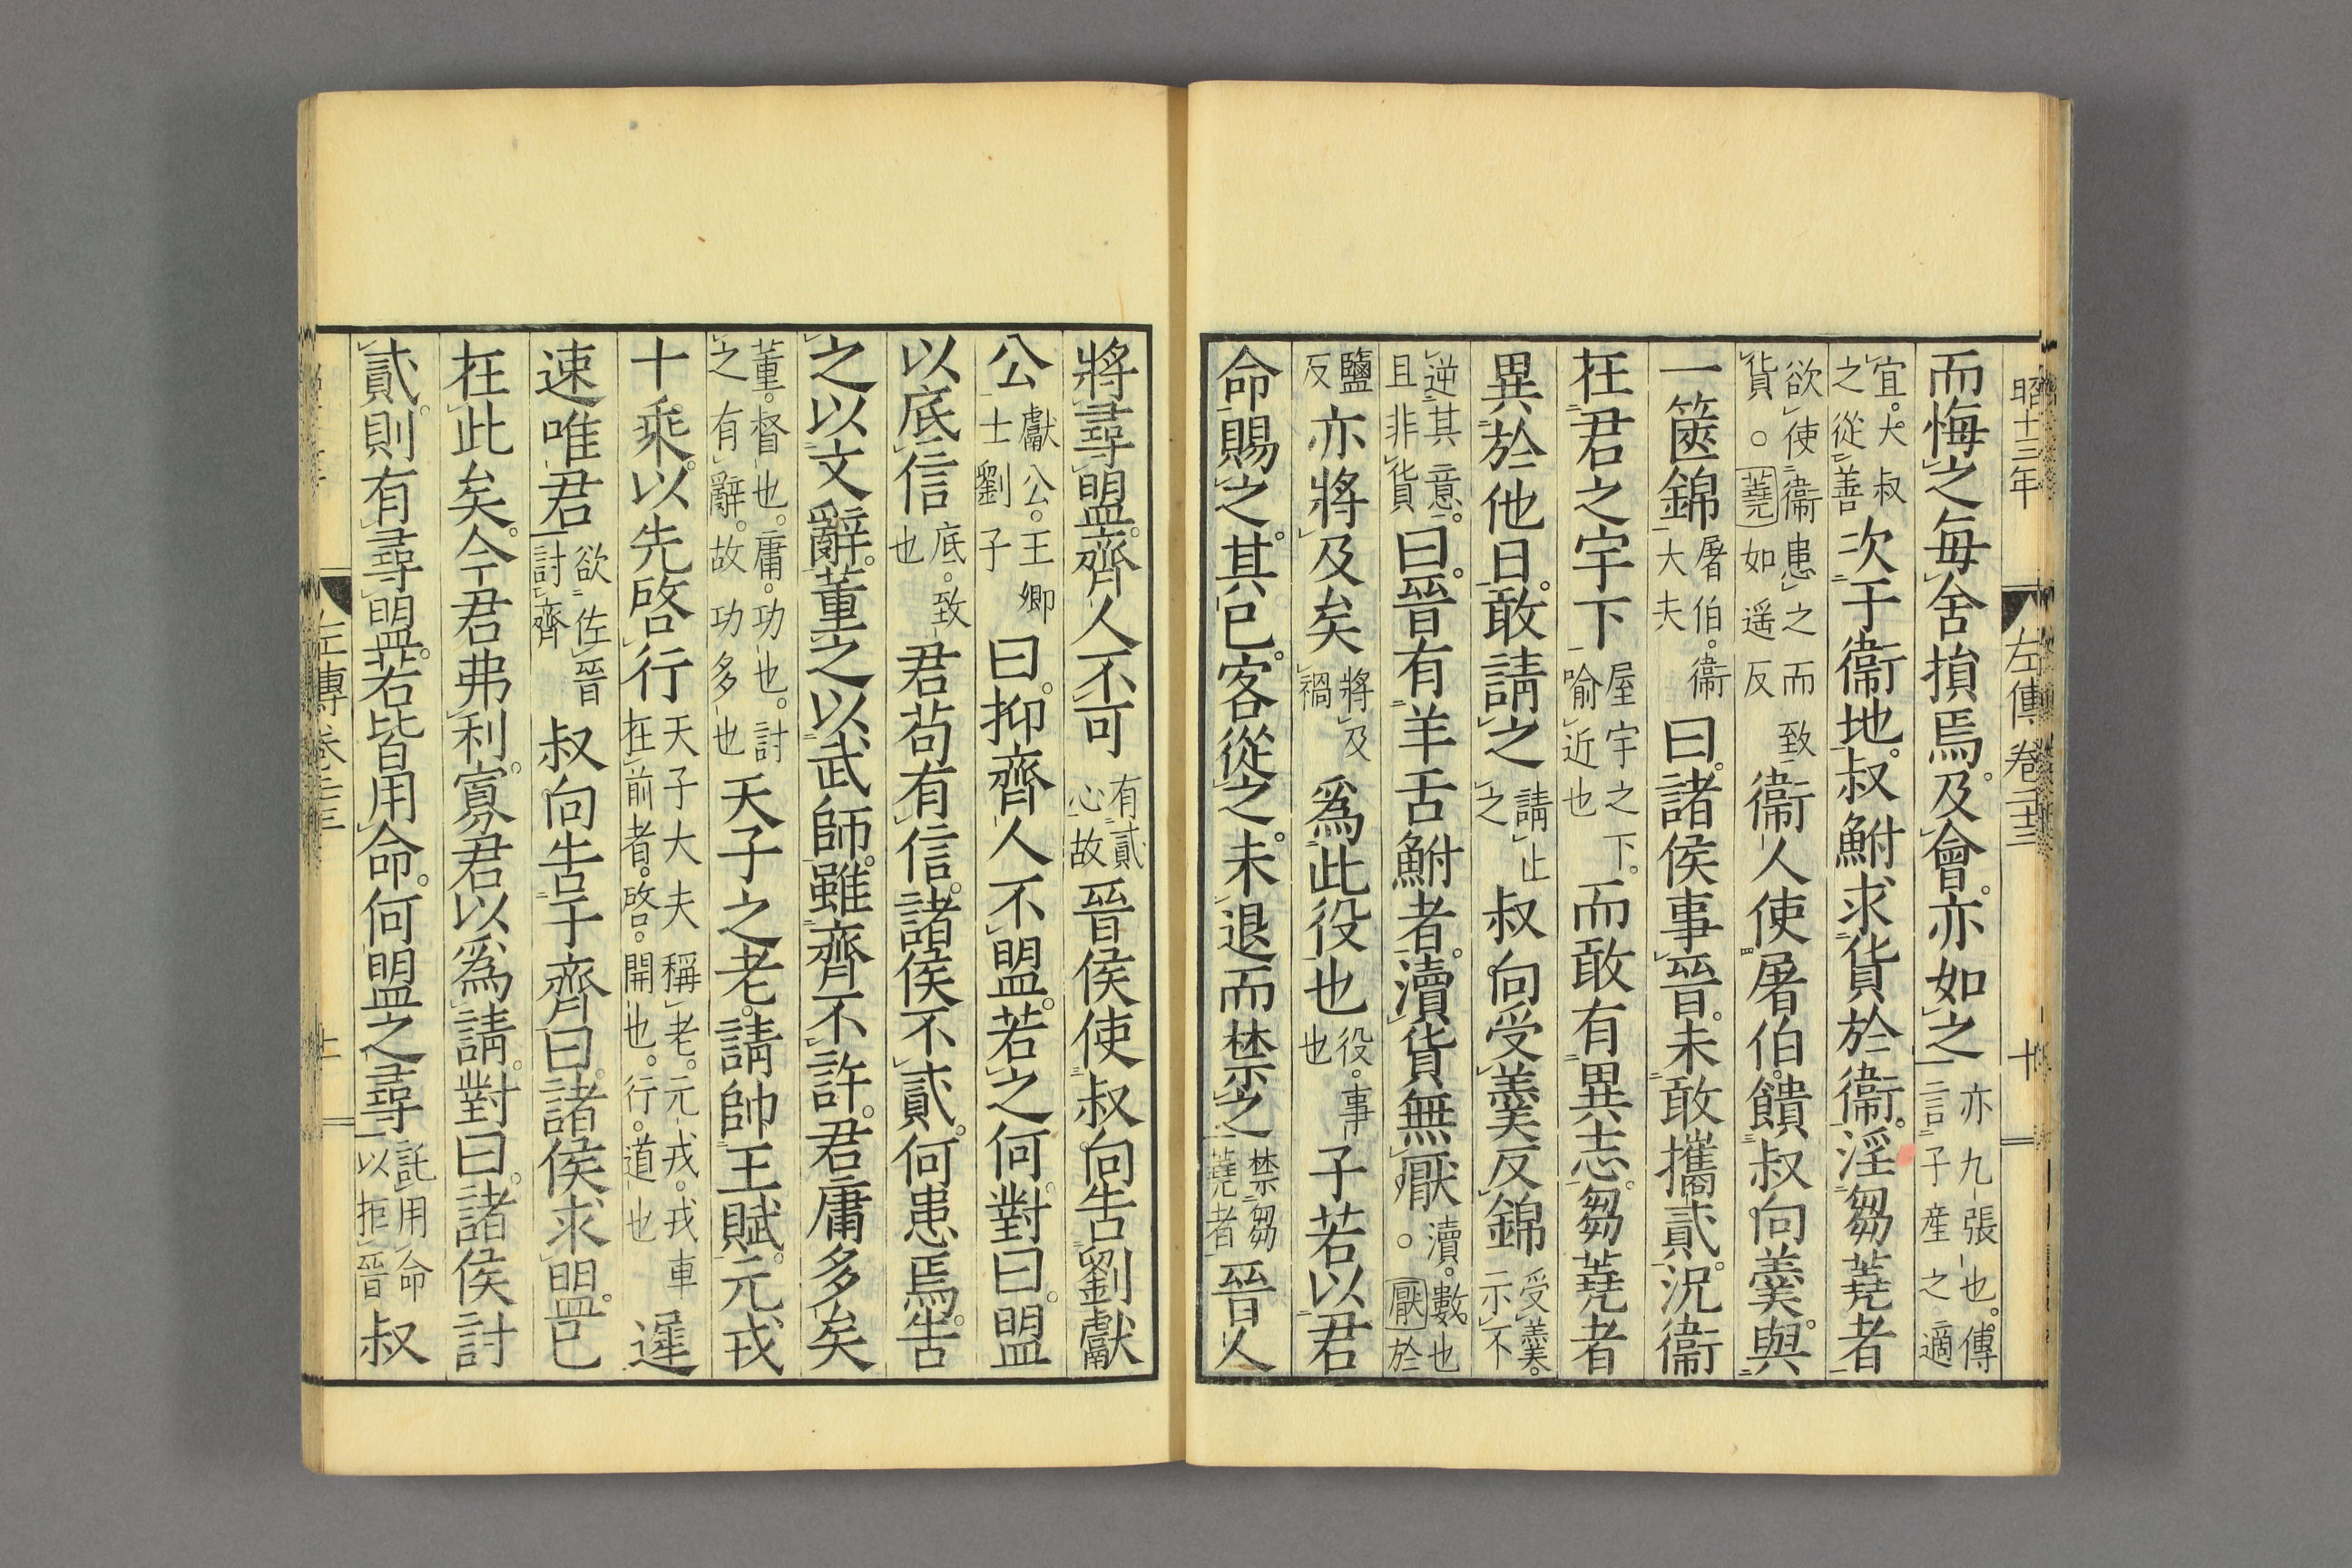 昭十三年 左傳卷二十三 十
而悔之毎舍損焉。及會。亦如之亦九張也。傳言子産之適
宜。大叔之從善次于衞地。叔鮒求貨於衞。淫芻蕘者
欲使衞患之而致貨。○蕘如遥反衞人使屠伯。饋叔向羹。與
一篋錦屠伯。衞大夫曰。諸侯事晉。未敢攜貳。況衞
在君之宇下屋宇之下。喻近也而敢有異志。芻蕘者
異於他日。敢請之請止之叔向受羹反錦受羹。示不
逆其意。且非貨曰。晉有羊舌鮒者。瀆貨無厭瀆。數也。○厭於
鹽反亦將及矣將及禍爲此役也役。事也子若以君
命賜之。其已。客從之。未退而禁之禁芻蕘者晉人
將尋盟。齊人不可有貳心故晉侯使叔向告劉獻
公獻公。王卿士劉子曰。抑齊人不盟。若之何。對曰。盟
以底信底。致也君苟有信。諸侯不貳。何患焉。告
之以文辭。董之以武師。雖齊不許。君庸多矣
董。督也。庸。功也。討之有辭。故功多也天子之老。請帥王賦。元戎
十乘。以先啓行天子大夫稱老。元戎。戎車在前者。啓。開也。行。道也遲
速唯君欲佐晉討齊叔向告于齊曰。諸侯求盟。已
在此矣。今君弗利。寡君以爲請。對曰。諸侯討
貳。則有尋盟。若皆用命。何盟之尋託用命以拒晉叔
左傳卷二十三